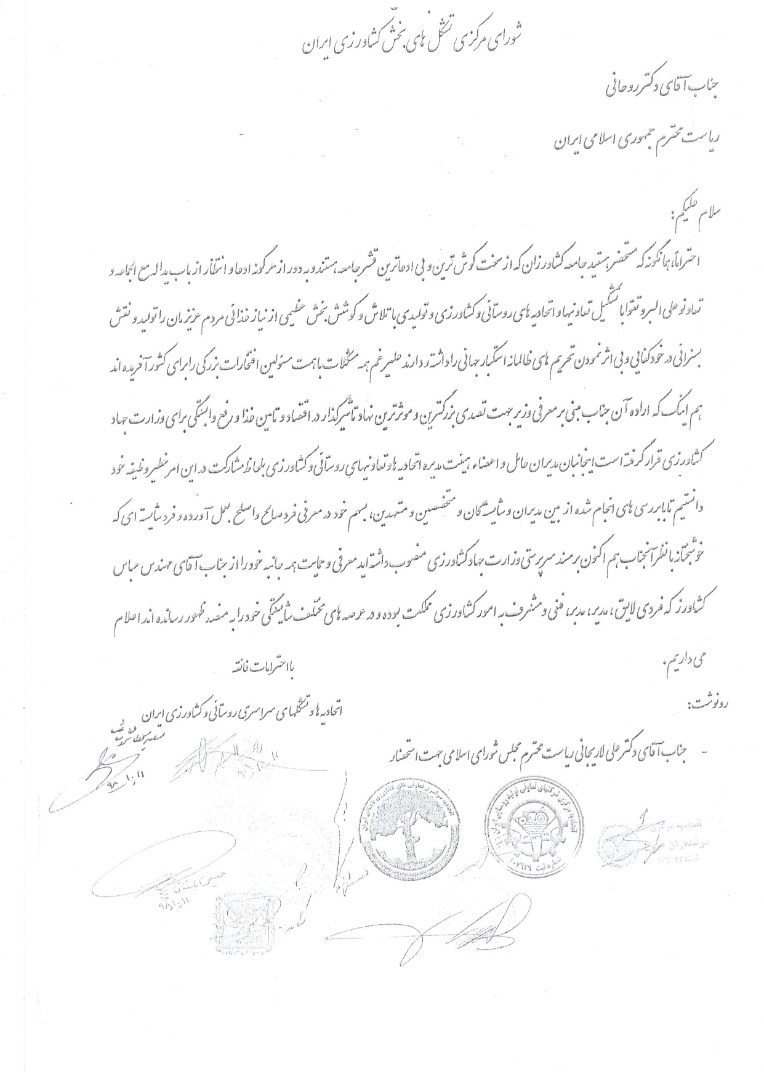 شورای مرکزی تشکل های بخش کشاورزی ایران
جناب آقای دکتر روحانی
ریاست محترم جمهوری اسلامی ایران
سلام علیکم:
احتراماً، همانگونه که مستحضر هستید جامعه کشاورزان که از سخت کوش ترین و بی ادعاترین قشر جامعه هستند و به دور از هرگونه ادعا و انتظار از باب یداله مع الجماعه و
تعاونو علی البر و تقوا با تشکیل تعاونیها و اتحادیه های روستائی و کشاورزی و تولیدی با تلاش و کوشش بخش عظیمی از نیاز غذائی مردم عزیزمان را تولید و نقش
بسزائی در خودکفایی و بی اثر نمودن تحریم های ظالمانه استکبار جهانی را داشته و دارند علیرغم همه مشکلات با همت مسئولین افتخارات بزرگی را برای کشور آفریده اند
هم اینک که اراده آن جناب مبنی بر معرفی وزیر جهت تصدی بزرگترین و موثرترین نهاد تأثیرگذار در اقتصاد و تامین غذا و رفع وابستگی برای وزارت جهاد
کشاورزی قرار گرفته است اینجانبان مدیران عامل و اعضاء هیئت مدیره اتحادیه ها و تعاونیهای روستائی و کشاورزی بلحاظ مشارکت در این امر خطیر وظیفه خود
دانستیم تا با بررسی های انجام شده از بین مدیران و شایستگان و متخصصین و متعهدین، بسهم خود در معرفی فرد صالح و اصلح بعمل آورده و فرد شایسته ای که
خوشبختانه با نظر آنجناب هم اکنون بر مسند سرپرستی وزارت جهاد کشاورزی منصوب داشته اید معرفی و حمایت همه جانبه خود را از جناب آقای مهندس عباس
کشاورز که فردی لایق، مدیر، مدبر، فنی و مشرف به امور کشاورزی مملکت بوده و در عرصه های مختلف شایستگی خود را به منصه ظهور رسانده اند اعلام
می داریم.
با احترامات فائقه
اتحادیه ها و تشکلهای سراسری روستائی و کشاورزی ایران
رونوشت:
- جناب آقای دکتر علی لاریجانی ریاست محترم مجلس شورای اسلامی جهت استحضار